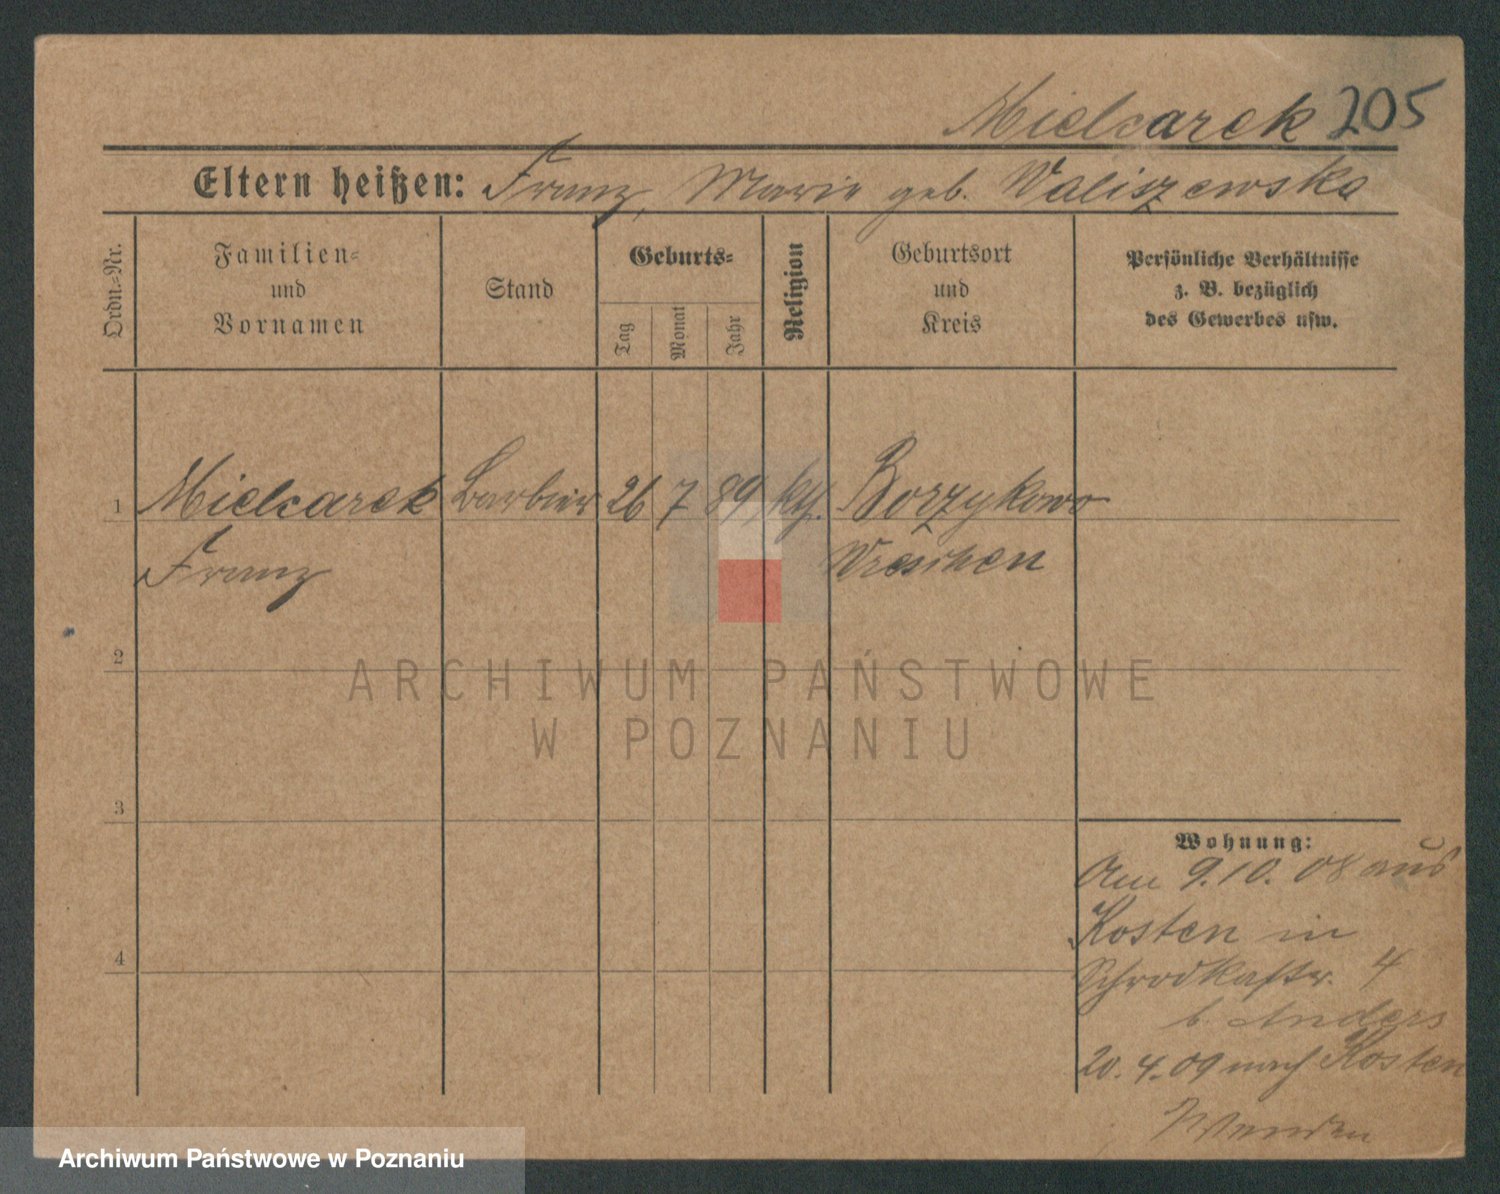 Mielcarek 205
Eltern heißen: Franz, Marie geb. Waliszewska
Ordn.-Nr.
Familien-
und
Vornamen
Stand
Geburts-
Tag
Monat
Jahr
Religion
Geburtsort
und
Kreis
Persönliche Verhältnisse
z. B. bezüglich
des Gewerbes usw.
1 Mielcarek Barbier 26 7 89 kth. Borzykowo
Franz Wreschen
2
3
4
Wohnung:
Am 9.10.08 aus
Kosten in
Schrodkastr. 4
b. Anders
20.4.09 nach Kosten
ARCHIWUM PAŃSTWOWE
W POZNANIU
Archiwum Państwowe w Poznaniu